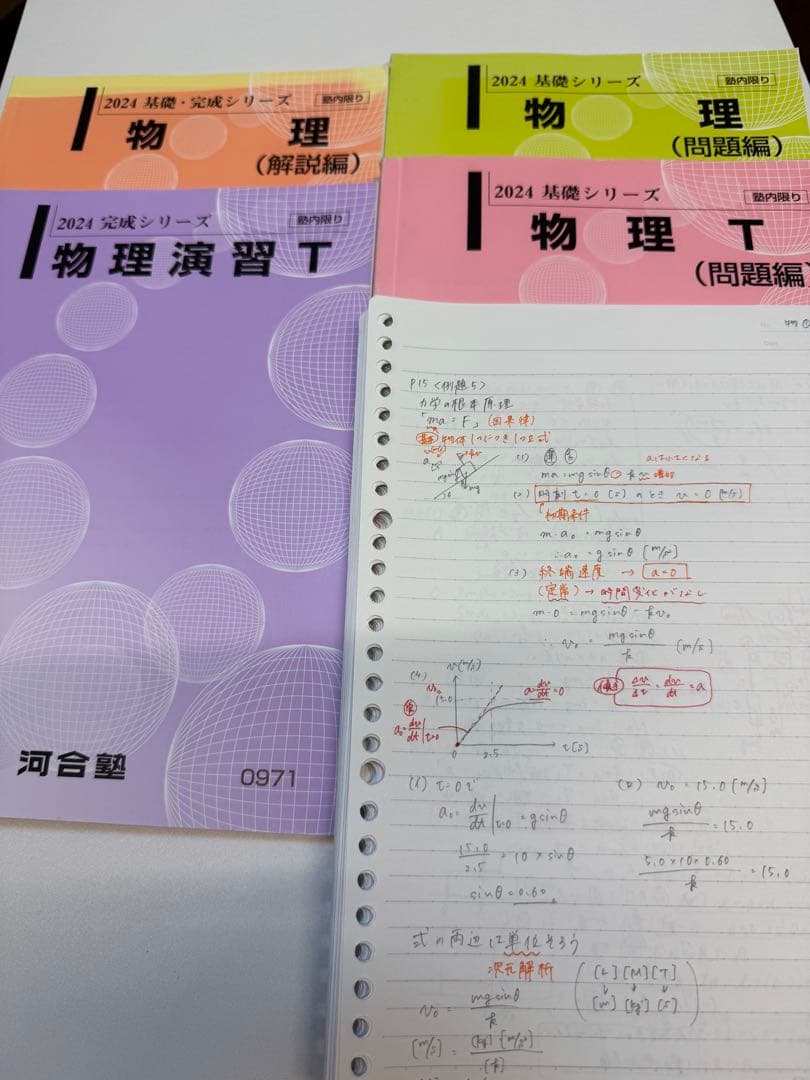 2024 基礎・完成シリーズ
塾内限り
物 理
(解説編)
2024 基礎シリーズ
塾内限り
物 理
(問題編)
2024 完成シリーズ
塾内限り
物理演習T
河合塾
0971
2024 基礎シリーズ
塾内限り
物 理 T
(問題編)
P15〈例題5〉
力学の根本原理
「ma = F」(因果律)
物体1つにつき1つ立式
(1)
ma = mgsinθ - kv
(2) 時刻 t = 0 [s] のとき v = 0 [m/s]
初期条件
m・a₀ = mgsinθ
∴ a₀ = gsinθ [m/s²]
(3) 終端速度 → a = 0
(定常) → 時間変化がなし
m・0 = mgsinθ - kv₀
∴ v₀ = mgsinθ / k [m/s]
(4)
v[m/s]
v₀
15.0
a = dv/dt = 0
a₀ = dv/dt | t=0
0
2.5
t[s]
Δv/Δt = dv/dt = a
(イ) t = 0で
a₀ = dv/dt | t=0 = gsinθ
15.0/2.5 = 10 × sinθ
sinθ = 0.60
(ロ) v₀ = 15.0 [m/s]
mgsinθ / k = 15.0
5.0×10×0.60 / k = 15.0
式の両辺は単位そろう
次元解析
[L] [M] [T]
↓ ↓ ↓
[m] [kg] [s]
v₀ = mgsinθ / k
[m/s] = [kg] [m/s²] / [k]